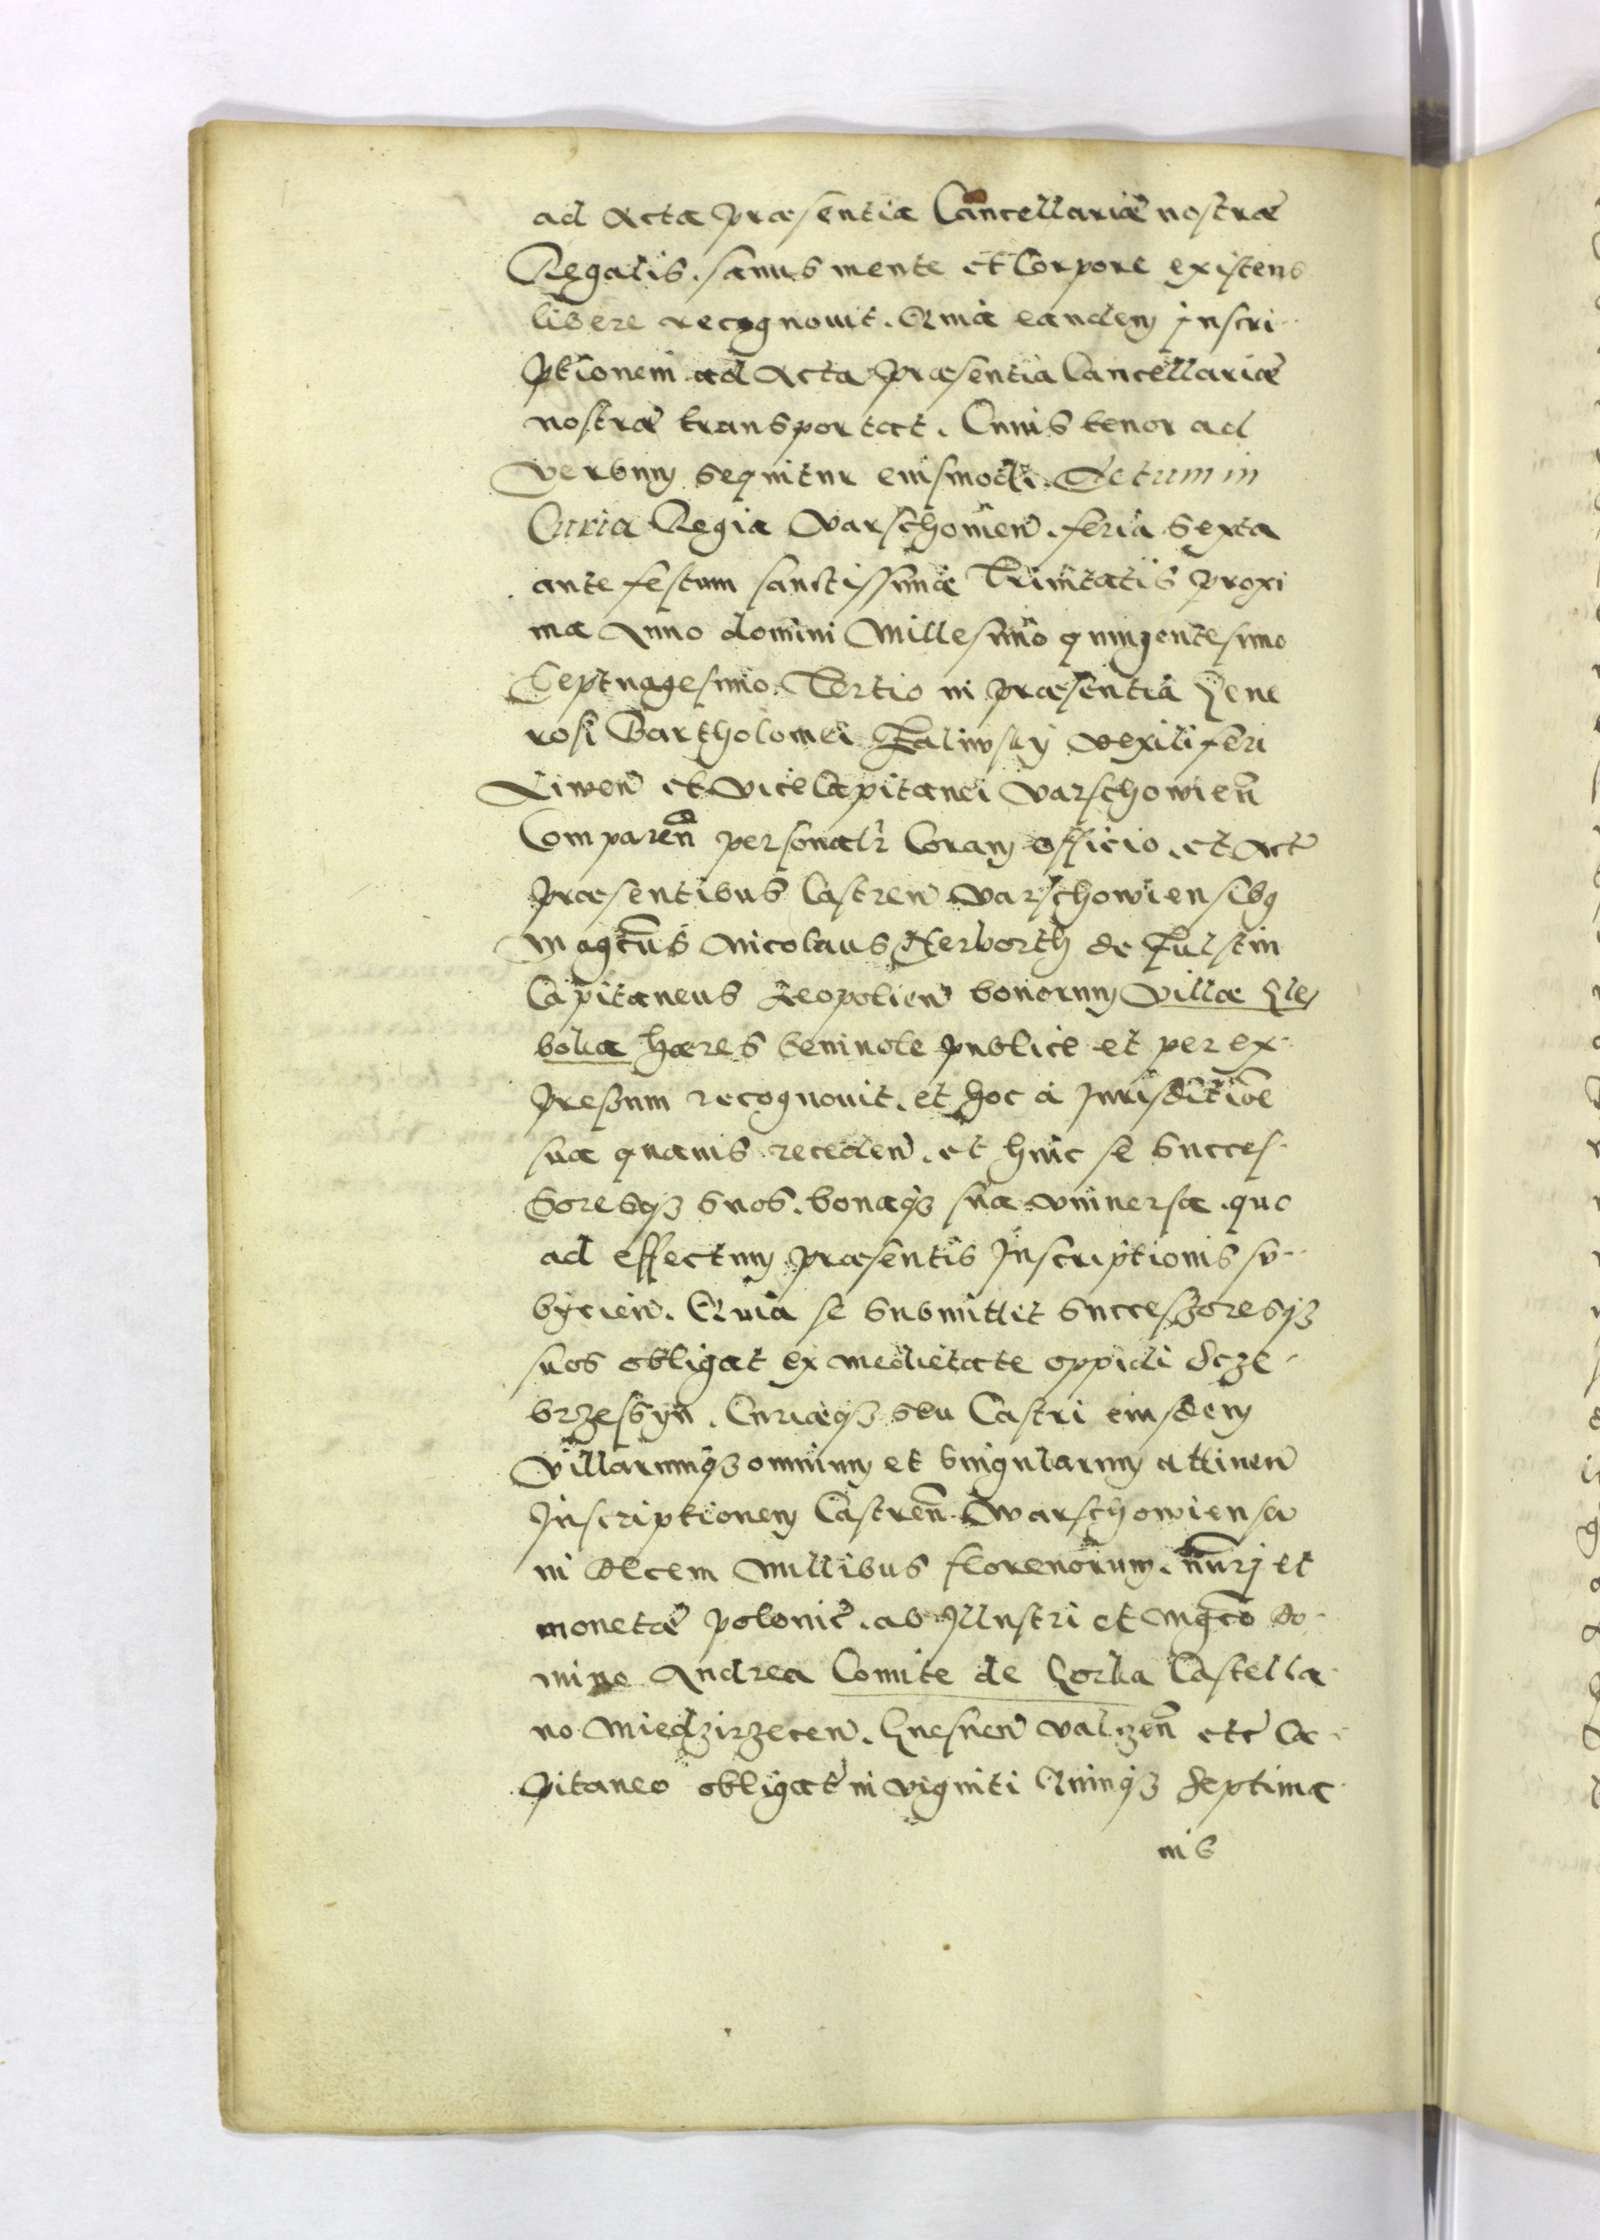 ad Acta præsentia Cancellariæ nostræ
Regalis. sanus mente et Corpore existens
libere recognouit. Quia eandem Inscri-
ptionem ad Acta præsentia Cancellariæ
nostræ transportat. Cuius tenor ad
verbum sequitur eiusmodi. Actum in
Curia Regia Varschouien̄. feria Sexta
ante festum sanctissimæ Trinitatis proxi
ma Anno domini Millesimo quingentesimo
Septuagesimo Tertio in præsentia Gene
rosi Bartholomei Zaliwskÿ vexiliferi
Liwen̄ et vice Capitanei Varschowien̄
Comparen̄ personalr̄ Coram officio. et Act̄
præsentibus Castren̄ varschowiensibg
Magcūs Nicolaus Herborth de Fulstin
Capitaneus Leopolien̄ bonorum Villæ
hæres beniuole publice et per ex-
pressum recognouit. et hoc à Jurisditiōe
sua quauis receden̄. et huic se Succes-
soresqȝ suos. bonaqȝ sua vniuersa. quo
ad effectum præsentis Inscriptionis su-
bÿcien̄. Quia se Submittet Successoresqȝ
suos obligat ex medietate oppidi Scze-
brzessyn. Curiæqȝ seu Castri eiusdem
villarumqȝ omnium et Singularum attinen̄
Inscriptionem Castren̄ Warschowiensem
in decem Millibus florenorum. nūrj et
monetæ polonic̄. ab Illustri et Mgco do-
mino Andrea Comite de Gorka Castella-
no Miedzirzecen̄. Gnesnen̄ valczen̄ etc̄ Ca-
pitaneo obligat̄ in viginti Quinqȝ Septima-
nis